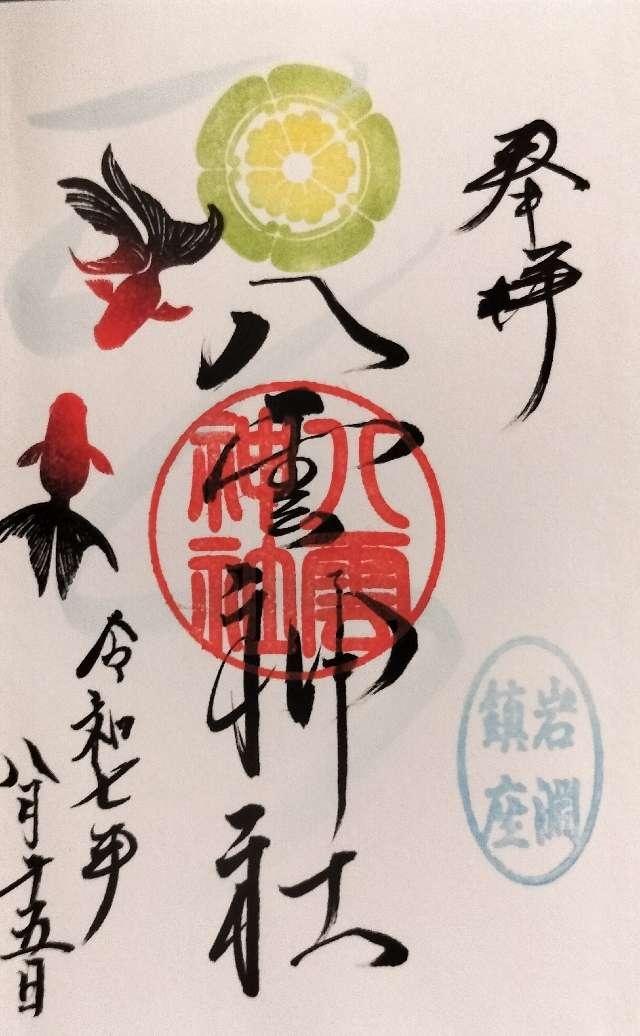 奉拝
岩淵
鎮座
八雲神社
八雲
神社
令和七年
八月十五日